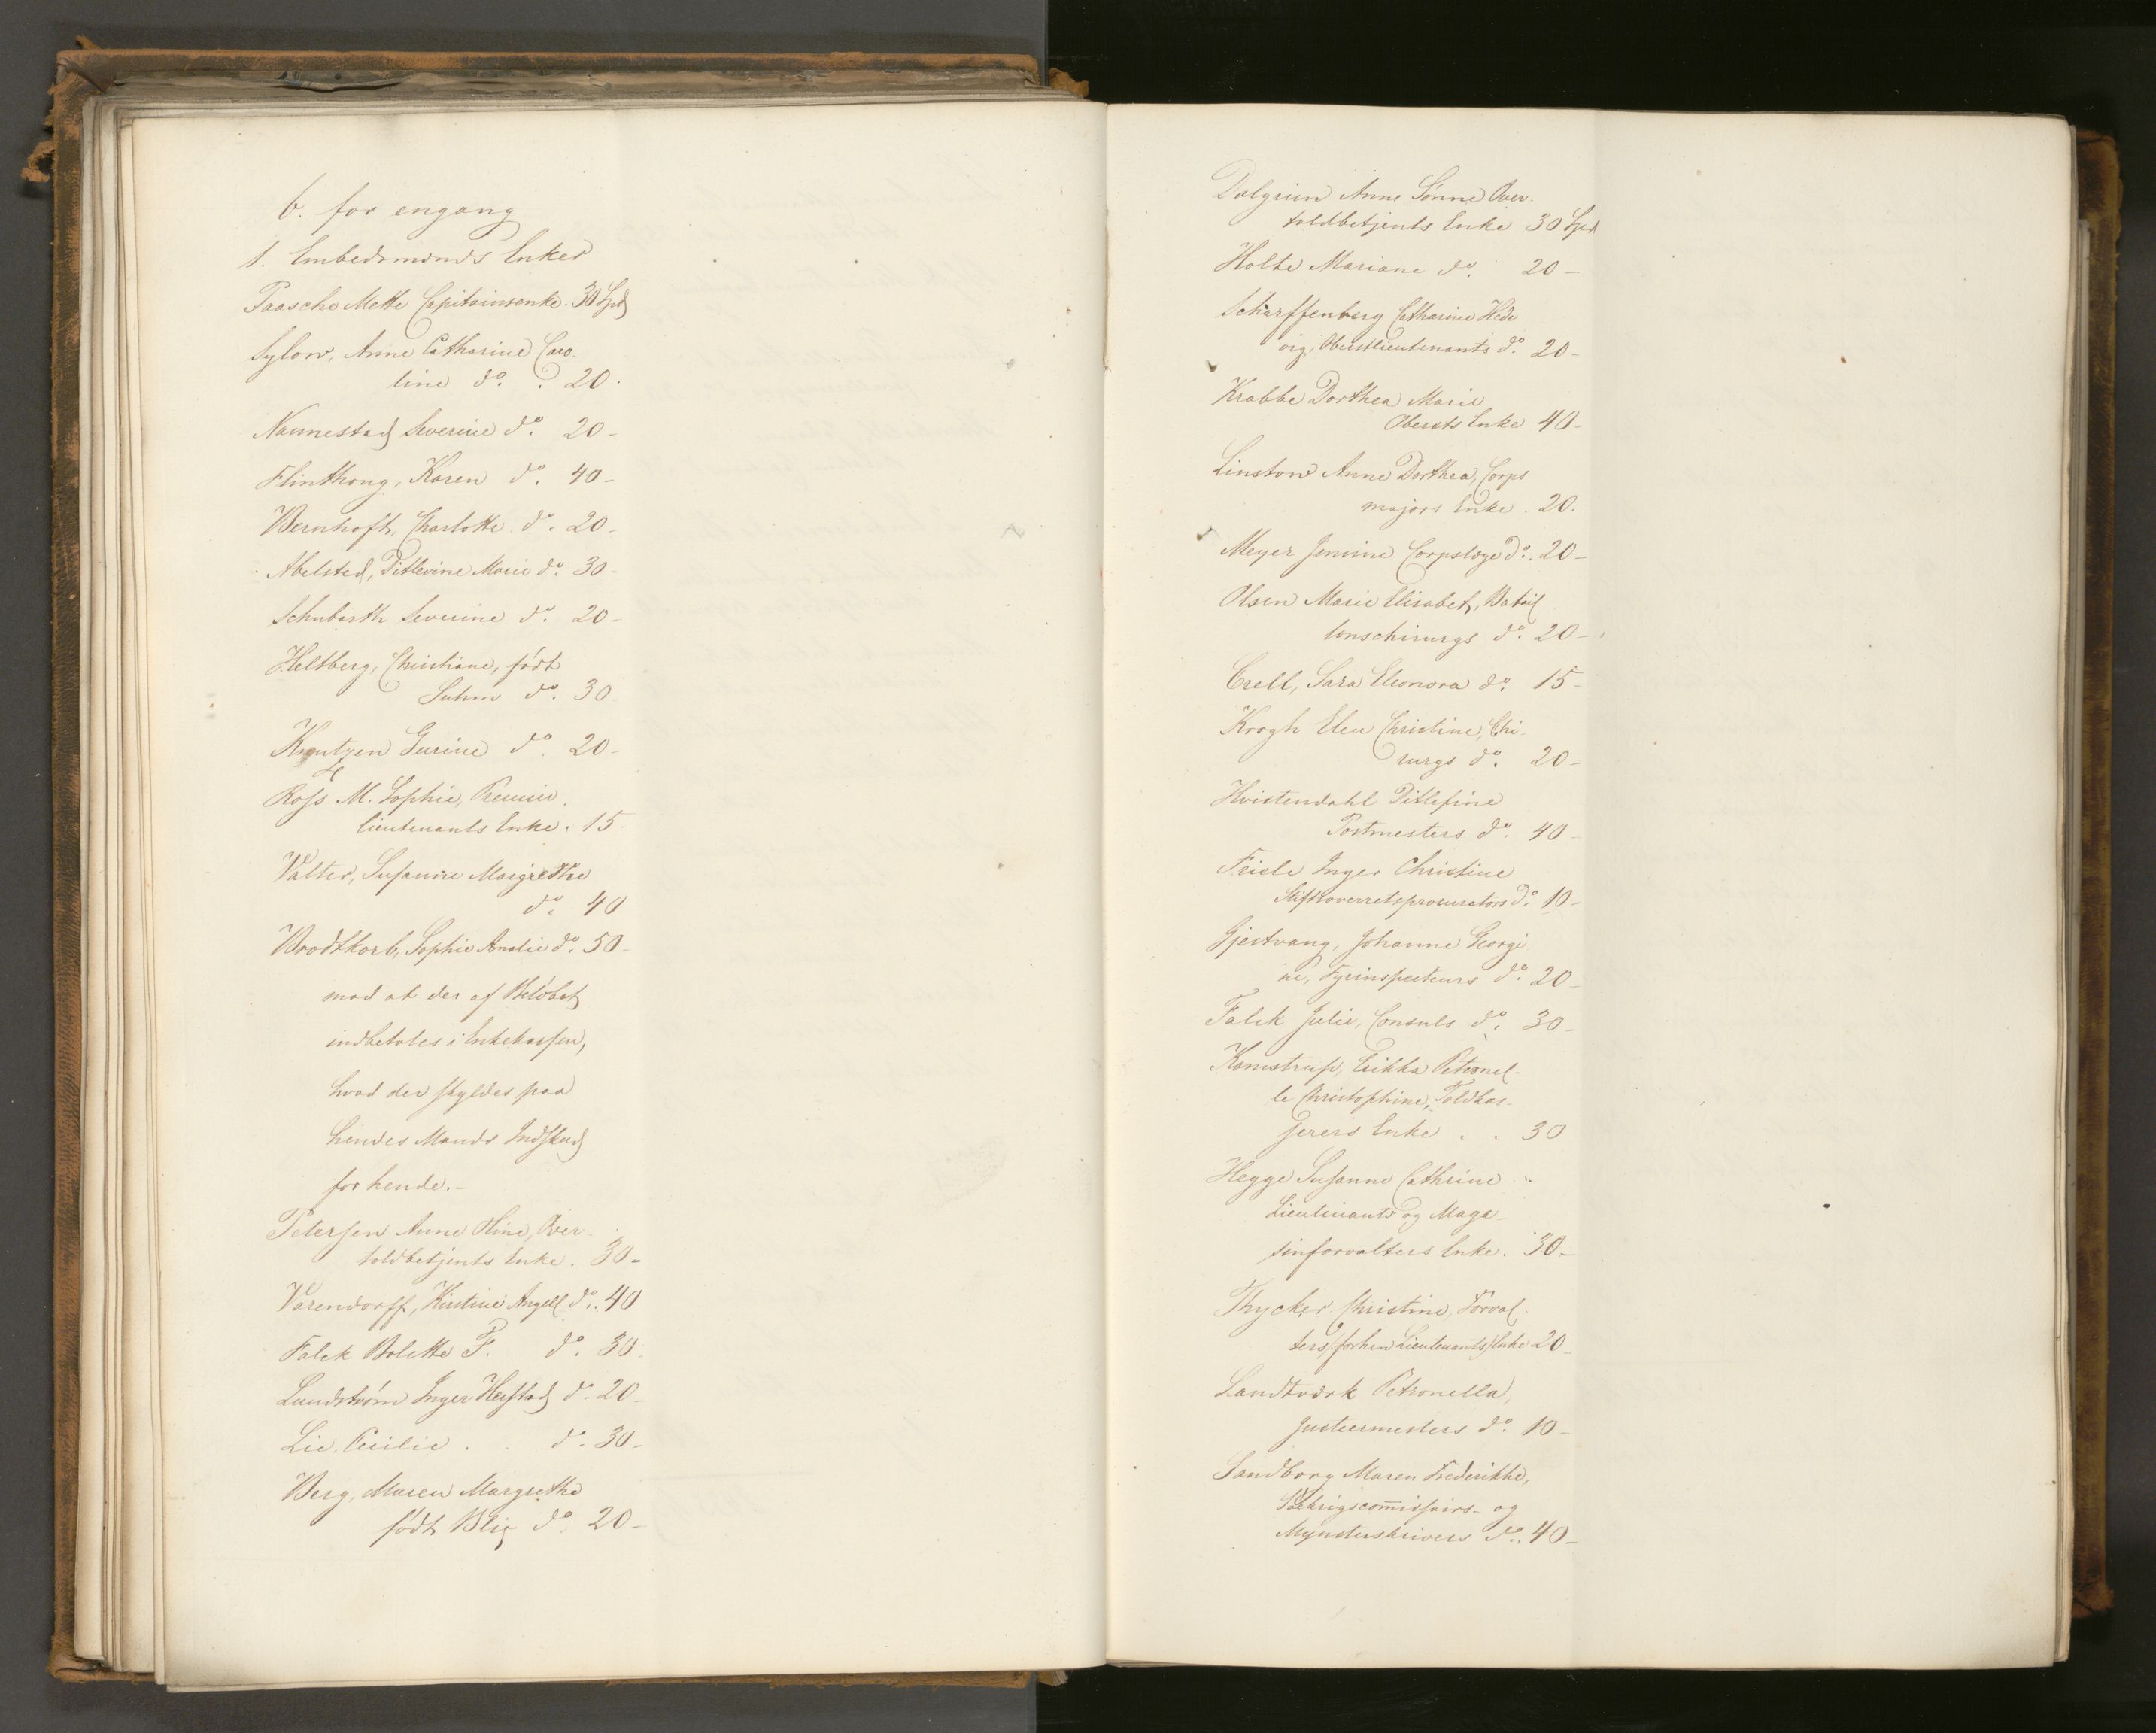 b. for engang
1. Embedsmænds Enker
Paasche Mette Capitainsenke. 30 Spd
Sylow, Anne Catharine Caro-
line do. . 20.
Nannestad Severine do. 20 -
Flinthoug, Karen do. 40 -
Wernhoft, Charlotte do. 20 -
Abelsted, Ditlevine Marie do. 30 -
Schubarth Severine do. 20 -
Heltberg, Christiane, født
Suhm do. 30
Gurine do. 20 -
Ross M. Sophie, Premier
lieutenants Enke. 15 -
Valter, Susanne Margrethe
do. 40
Woodtkorb, Sophie Amalie do. 50 -
mod at der af Beløbet
indbetales i Enkekassen,
hvad der skyldes paa
hendes Mands Indskud
for hende. -
Petersen Anne Stine, Over
toldbetjents Enke. 30 -
Varendorff, Kirstine Angell do. 40
Falck Bolette F. do. 30
Lundstrøm Inger Hefstad do. 20 -
Lie, Cecilie . . do. 30 -
Berg, Maren Margrethe
født Blix do. 20 -
Dalgrün Anne Sønne Over-
toldbetjents Enke 30 Spd
Holte Mariane do. 20 -
Scharffenberg Catharine Hede
vig, Oberstlieutenants do. 20 -
Krabbe Dorthea Marie
Obersts Enke 40 -
Linstow Anne Dorthea, Corps
majors Enke . 20.
Meyer Jensine Corpslæge do. 20 -
Olsen Marie Elisabet, Batail
lonschirurgs do. 20 -
Crell, Sara Eleonora do. 15 -
Krogh Elen Christine, Chi-
rurgs do. 20 -
Hvistendahl Ditlefine
Postmesters do. 40 -
Friele Inger Christine
Stiftsoverretsprocurators do. 10 -
Gjestvang, Johanne Georgi
ne, Fyrinspecteurs do. 20 -
Falck Julie, Consuls do. 30 -
Kamstrup, Erikka Petronel-
le Christophine, Toldkas-
serers Enke . . 30
Hegge Susanne Cathrine
Lieutenants og Maga-
sinforvalters Enke. 30 -
Thycker Christine, Forval-
ters, (forhen Lieutenants) Enke 20 -
Landtværk Petronella,
Justeermesters do. 10 -
Sandborg Maren Frederikke,
Søekrigscommissairs- og
Mynsterskrivers do. 40 -